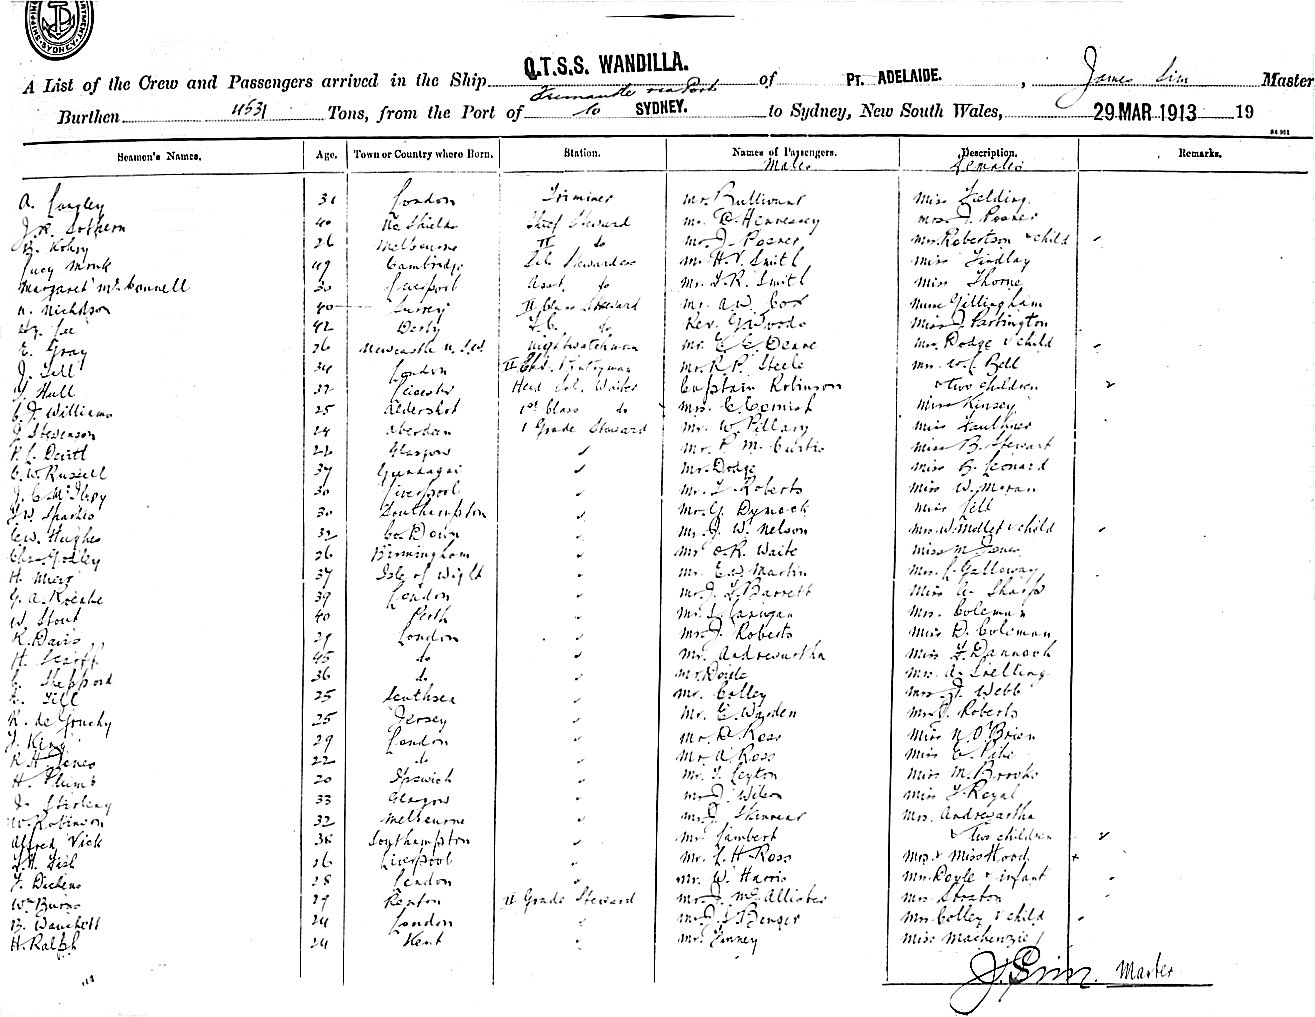 A List of the Crew and Passengers arrived in the Ship Q.T.S.S. WANDILLA. of Pt. ADELAIDE. , James Sim Master
Burthen 4531 Tons, from the Port of Fremantle via Ports to SYDNEY. to Sydney, New South Wales, 29 MAR 1913 19
Seamen's Names. Age. Town or Country where Born. Station. Names of Passengers. Description. Remarks.
Males Females
A. Langley 31 London Trimmer Mr. Bullivant Miss Fielding
J.R. Sothern 40 Nth Shields Chief Steward Mr. C. Hennessey Mrs. J. Posner
26 Melbourne II do Mr. J. Posner Mrs. Robertson & child
Lucy Monk 49 Cambridge Stewardess Mr. H.V. Smith Miss Findlay
Margaret McConnell 30 Liverpool Asst. do Mr. J.R. Smith Miss Thorne
Nicholson 40 Surrey II Class Steward Mr. A.W. Cox Nurse Gillingham
Lee 42 Derby do Rev. G. Woods Miss J. Partington
E. Gray 26 Newcastle Nightwatchman Mr. E.E. Deane Mrs. Dodge & child
J. Gill 34 London II Pantryman Mr. R.P. Steele Mrs. W.C. Bell
Hull 32 Leicester Head Sal. Waiter Captain Robinson & two children
C.F. Williams 25 Aldershot 1st Class do Mrs. C. Cornish Miss Kinsey
J. Stevenson 24 Aberdeen 1 Grade Steward Mr. W. Pillary Miss Faulkner
22 Glasgow Mr. P.M. Curtis Miss B. Stewart
C.W. Russell 37 Gundagai Mr. Dodge Miss B. Leonard
J.C. McIlroy 30 Liverpool Mr. L. Roberts Miss W. Moran
Sparkes 30 Southampton Mr. G. Dymock Miss Gill
C.W. Hughes 32 Co. Down Mr. J.W. Nelson Mrs. W. Mollet & child
Chas. Godley 26 Birmingham Mr. R. Waite Miss M. Jones
H. 37 Isle of Wight Mr. E.W. Martin Mrs. L. Galloway
G.A. Roenke 39 London Mr. J.L. Barrett Miss A. Sharp
W. Stout 40 Perth Mr. L. Lanigan Mrs. Coleman
R. Davis 29 London Mr. J. Roberts Miss D. Coleman
H. 45 do Mr. Andrewartha Miss F. Dannock
Sheppard 36 do Mr Doyle Mrs. A. Snelling
Gill 25 Southsea Mr. Colley Mrs. J. Webb
R. de Gruchy 25 Jersey Mr. E. Warden Mrs. J. Roberts
J. King 29 London Mr. D. Ross Miss N. O'Brien
R.H. Jones 22 do Mr. A. Ross Miss E. Pike
H. Plumb 20 Ipswich Mr. T. Leyton Miss M. Brooks
J. Stirling 33 Glasgow Mr. J. Wilson Miss F. Royal
W. Robinson 32 Melbourne Mr. J. Skinner Mrs. Andrewartha
Alfred Vick 38 Southampton Mr. Lambert & two children
Fish 26 Liverpool Mr. L.H. Ross Mrs. & Miss Hood
F. Dickens 28 London Mr. W. Harris Mrs. Doyle & infant
Wm Burns 29 Renton II Grade Steward Mr. J. McAllister Mrs. Straton
B. Wauchett 24 London Mr. J.L. Benger Mrs. Colley & child
H. Ralph 24 Kent Mr. Finney Miss Mackenzie
J. Sim. Master